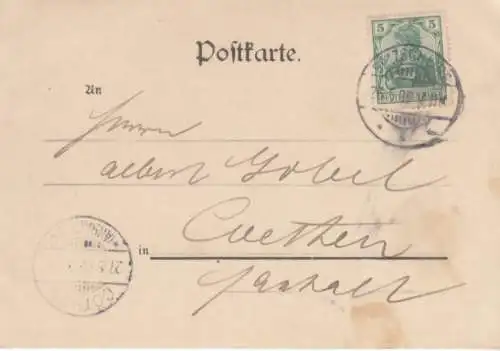 Postkarte.
5 5
An
Herrn
Albert Göbel
in Coethen
Anhalt